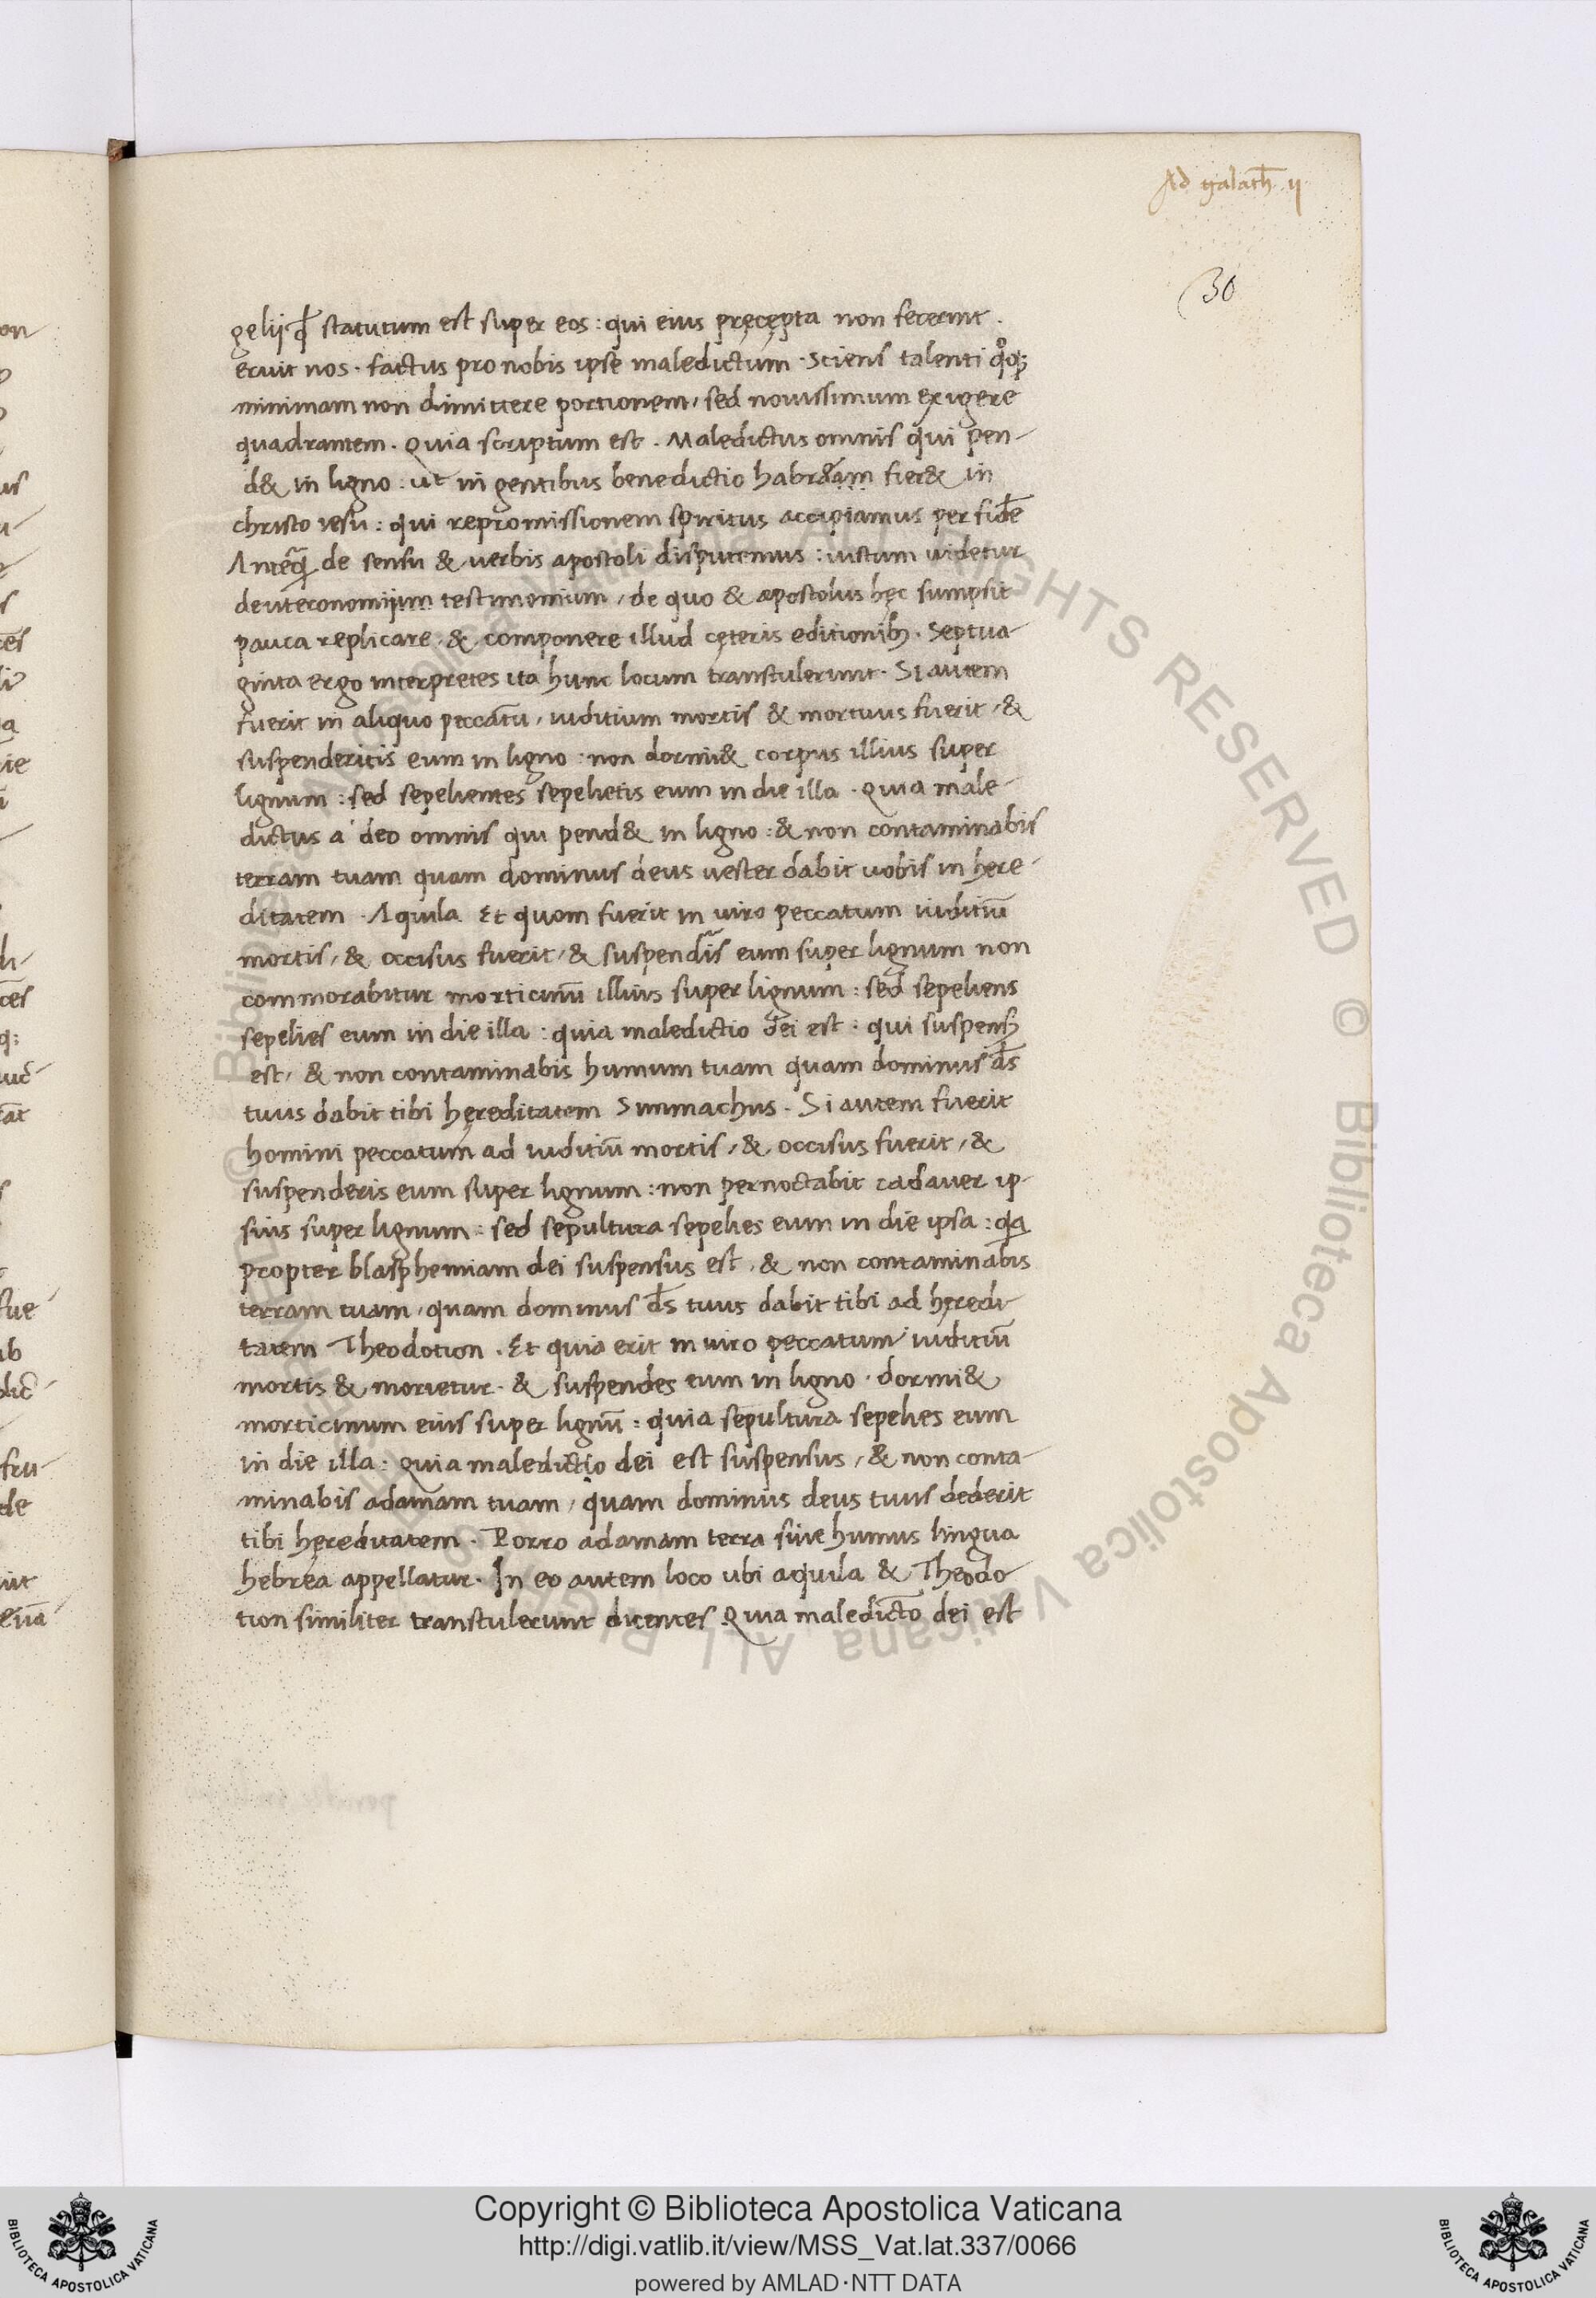 Ad galath̄ ij
30
gelij qđ statutum est super eos : qui eius pręcępta non fecerint .
eruit nos . factus pro nobis ipse maledictum . Sciens talenti qͦq;
minimam non dimittere portionem, sed nouissimum exigere
quadrantem . Quia scriptum est . Maledictus omnis qui pen-
d& in ligno : ut in gentibus benedictio habraam fier& in
christo iesu : qui repromissionem spiritus accipiamus per fidē
Anteq̄ de sensu & uerbis apostoli disputemus : iustum uidetur
deuteronomijum testimonium, de quo & apostolus hęc sumpsit
pauca replicare, & componere illud cęteris editionib; . Septua-
ginta ergo interpretes ita hunc locum transtulerunt . Si autem
fuerit in aliquo peccatū, iuditium mortis & mortuus fuerit, &
suspenderitis eum in ligno : non dormi& corpus illius super
lignum : sed sepelientes sepelietis eum in die illa . Quia male-
dictus a deo omnis qui pend& in ligno : & non contaminabis
terram tuam quam dominus deus uester dabit uobis in here-
ditatem . Aquila Et quom fuerit in uiro peccatum iuditiū
mortis, & occisus fuerit, & suspendīs eum super lignum non
commorabitur morticinū illius super lignum : sed sepeliens
sepelies eum in die illa : quia maledictio dei est : qui suspens;
est, & non contaminabis humum tuam quam dominus ds̄
tuus dabit tibi hęreditatem Simmachus . Si autem fuerit
homini peccatum ad iuditiū mortis, & occisus fuerit, &
suspenderis eum super lignum : non pernoctabit cadauer ip-
sius super lignum : sed sepultura sepelies eum in die ipsa : qa
propter blasphemiam dei suspensus est, & non contaminabis
terram tuam, quam dominus ds̄ tuus dabit tibi ad hęredi-
tatem Theodotion . Et quia erit in uiro peccatum iuditiū
mortis & morietur . & suspendes eum in ligno . dormi&
morticinum eius super lignū : quia sepultura sepelies eum
in die illa : quia maledictio dei est suspensus, & non conta-
minabis adamam tuam, quam dominus deus tuus dederit
tibi hęreditatem . Porro adamam terra siue humus lingua
hebrea appellatur . In eo autem loco ubi aquila & Theodo-
tion similiter transtulerunt dicentes Quia maledicto dei est
Copyright © Biblioteca Apostolica Vaticana
http://digi.vatlib.it/view/MSS_Vat.lat.337/0066
powered by AMLAD·NTT DATA